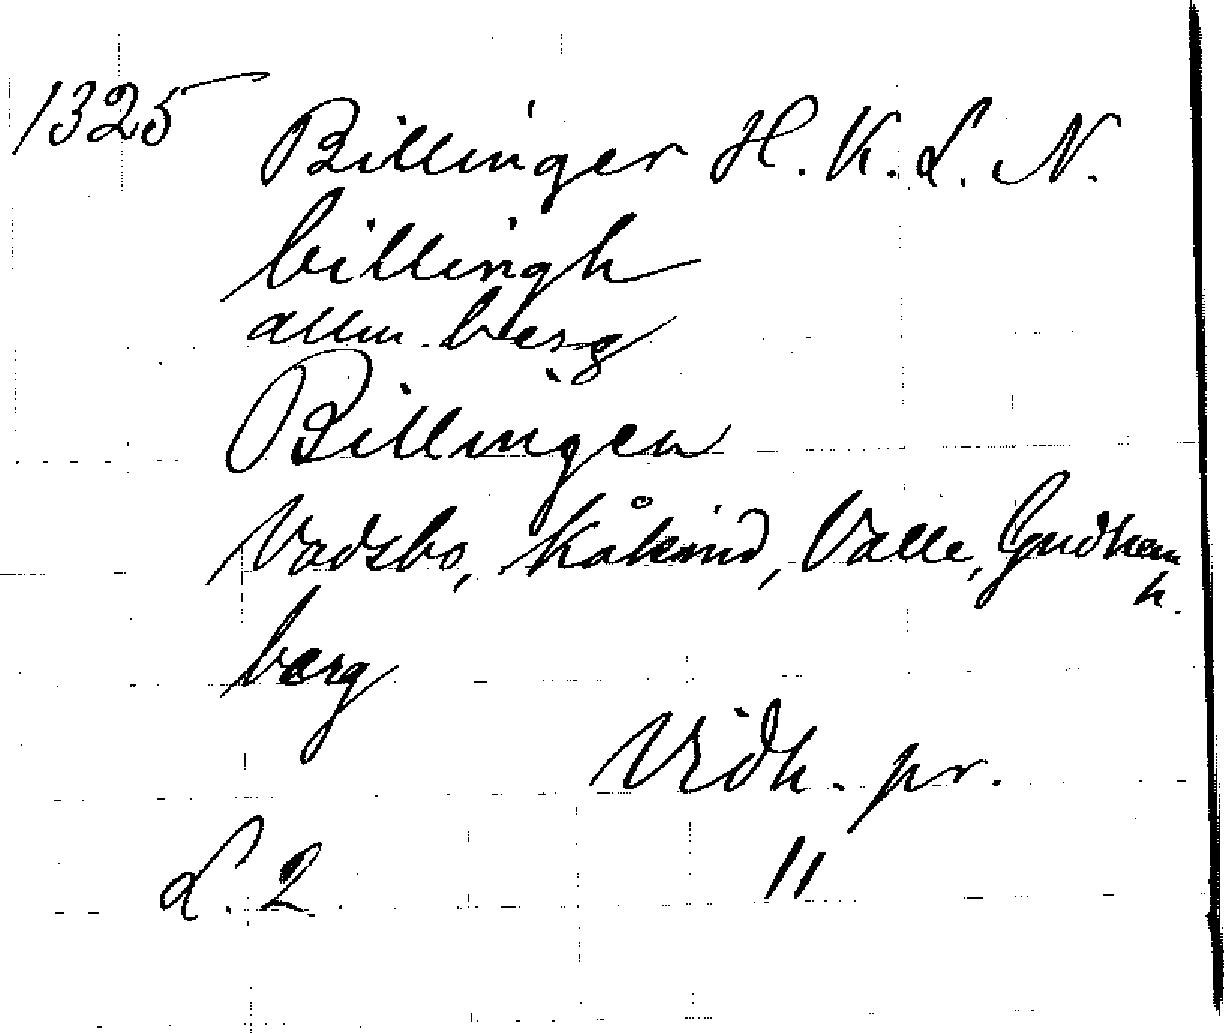 1325
Billinger H. K. L. N.
billingh
allm. berg
Billingen
Vadsbo, Kåkind, Valle, Gudhem
h.
berg
Vidh. pr.
L. 2. 11